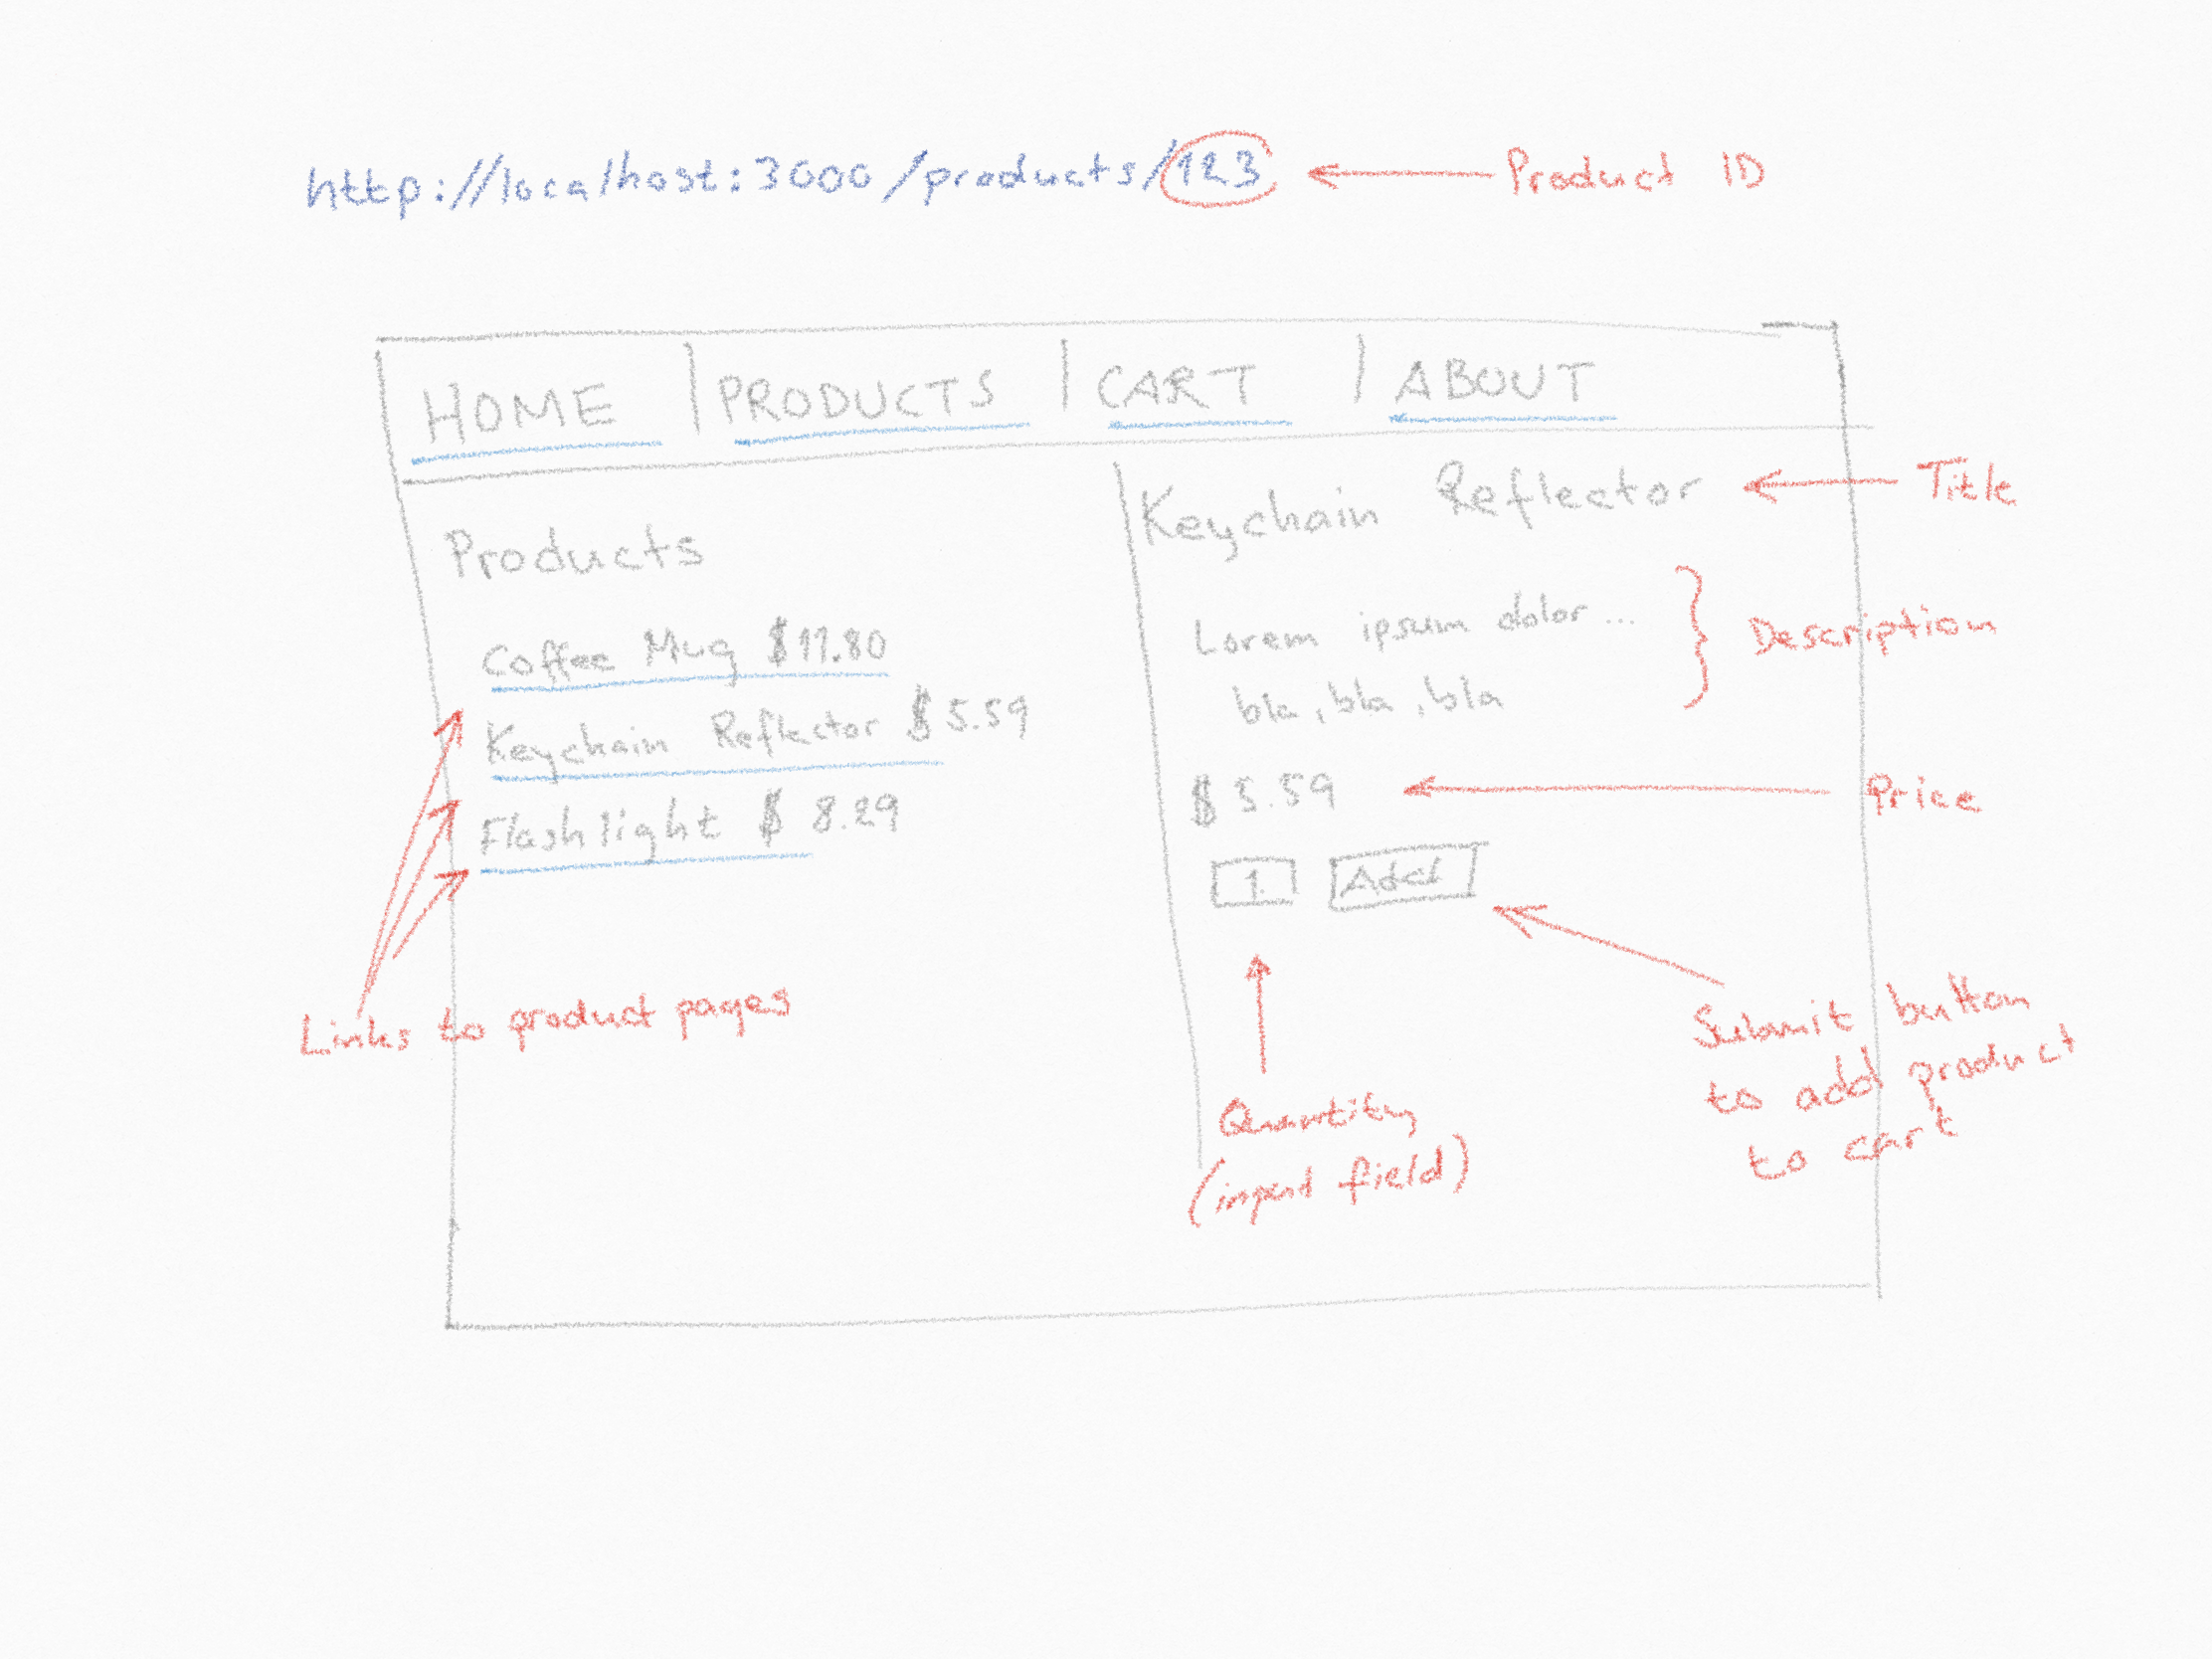 http://localhost:3000/products/123
Product ID
HOME | PRODUCTS | CART | ABOUT
Products
Coffee Mug $11.80
Keychain Reflector $5.59
Flashlight $ 8.29
Links to product pages
Keychain Reflector
Title
Lorem ipsum dolor...
bla, bla, bla
Description
$ 5.59
Price
1
Add
Quantity
(input field)
Submit button
to add product
to cart